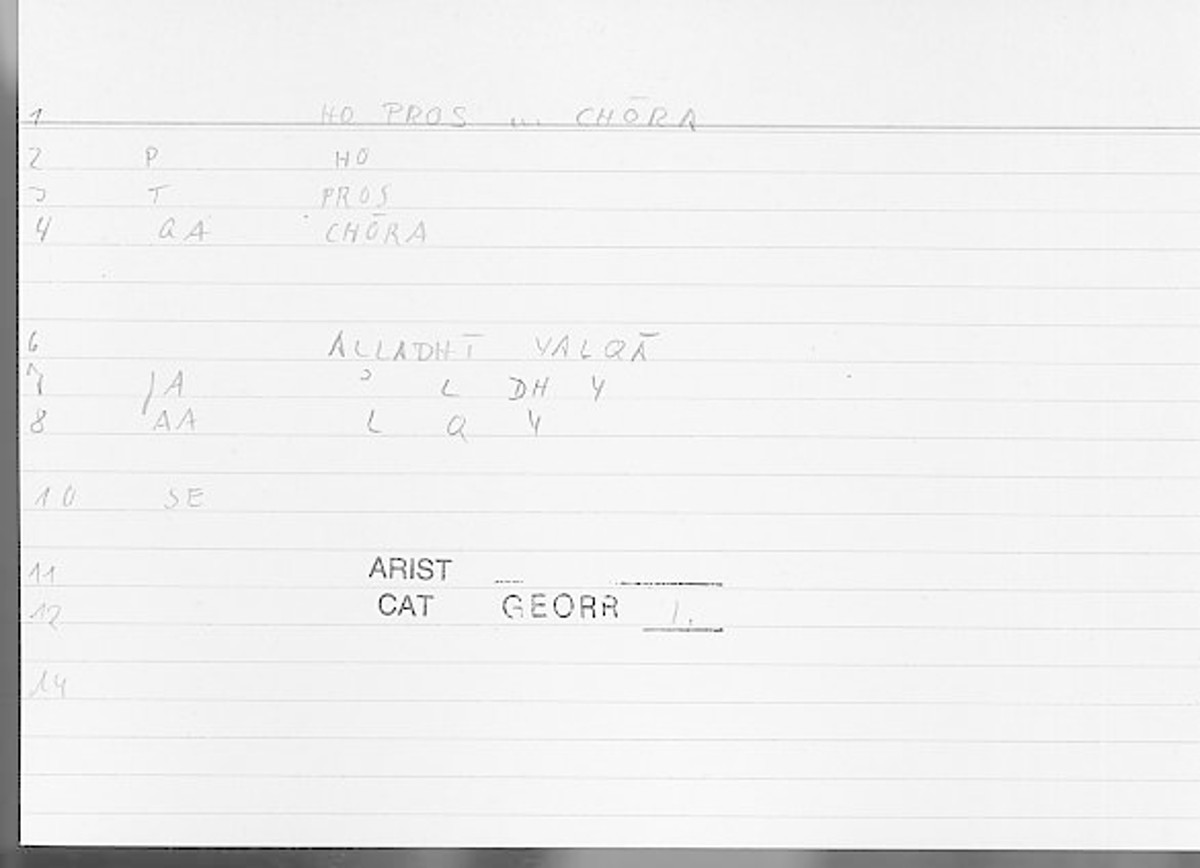 1 HO PROS ... CHŌRA
2 P HO
3 T PROS
4 QA CHŌRA
6 ALLADHĪ YALQĀ
7 /A ʾ L DH Y
8 AA L Q Y
10 SE
11 ARIST
12 CAT GEORR 1.
14